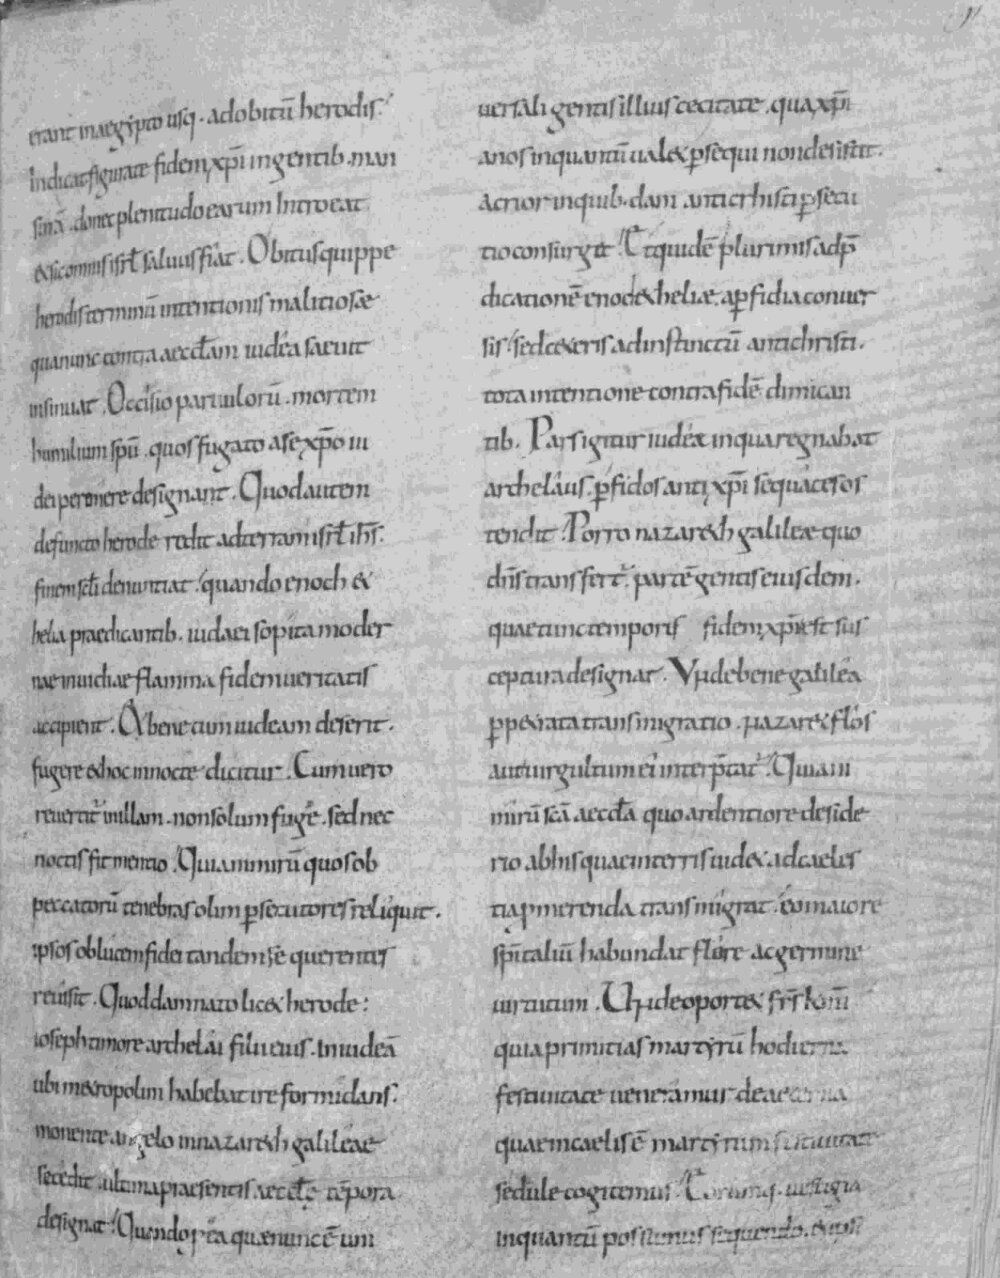 erant in aegẏpto usq· ad obitū herodis·
Indicat figurate fidem xp̄i in gentib· man
surā· donec plenitudo earum Introeat
& sic omnis isrł saluus fiat· Obitus quippe
herodis terminū intentionis malitiosae
qua nunc contra aecctam iudea saeuit
insinuat· Occisio paruulorū· mortem
humilium spū· quos fugato a se xp̄o iu
dei peremere designant· Quod autem
defuncto herode redit ad terram isrł ihs̄·
finem sctī denuntiat· quando enoch &
helia praedicantib· iudaei sopita moder
nae inuidiae flamma fidem ueritatis
accipient· & bene cum iudeam deserit·
fugere & hoc in nocte dicitur· Cum uero
reuertit' in illam· non solum fuge· sed nec
noctis fit mentio· Quia nimirū quos ob
peccatorū tenebras olim psecutores reliquit·
ipsos ob lucem fidei tandem se querentes
reuisit· Quod damnato lic& herode:
ioseph timore archelai filii eius· In iudeā
ubi m&ropolim habebat ire formidans·
monente angelo in nazar&h galileae
secedit· ultima praesentis aecctę tēpora
designat· Quando p ea quae nunc ē uni
uersali gentis illius cecitate· qua xp̄i
anos inquantū ual& psequi non desistit·
Acrior in quib·dam anticrhisti psecu
tio consurgit· Et quidē plurimis ad p̄
dicationē enoch & heliae· a pfidia conuer
sis· sed ceteris ad instinctū antichristi·
tota intentione contra fidē dimican
tib· Pars igitur iudeae in qua regnabat
archelaus· pfidos anti xp̄i sequaces os
tendit· Porro nazar&h galileae quo
dn̄s transfert'· partē gentis eiusdem·
quae tunc temporis fidem xp̄i est sus
ceptura designat· Vnde bene galilea
pp&rata transmigratio· nazar& flos
aut uirgultum ei' interptat'· Quia ni
mirū scā aeccta quo ardentiore deside
rio ab his quae in terris uid& ad caeles
tia pmerenda transmigrat· eo maiore
spitaliū habundat flore ac germine
uirtutum· Unde oport& frs̄ kmī
quia primitias martẏrū hodierna
festiuitate ueneramur de aeterna
quae in caelis ē martẏrum festiuitate
sedule cogitemus· Eorumq· uestigia
inquantū possumus sequendo·